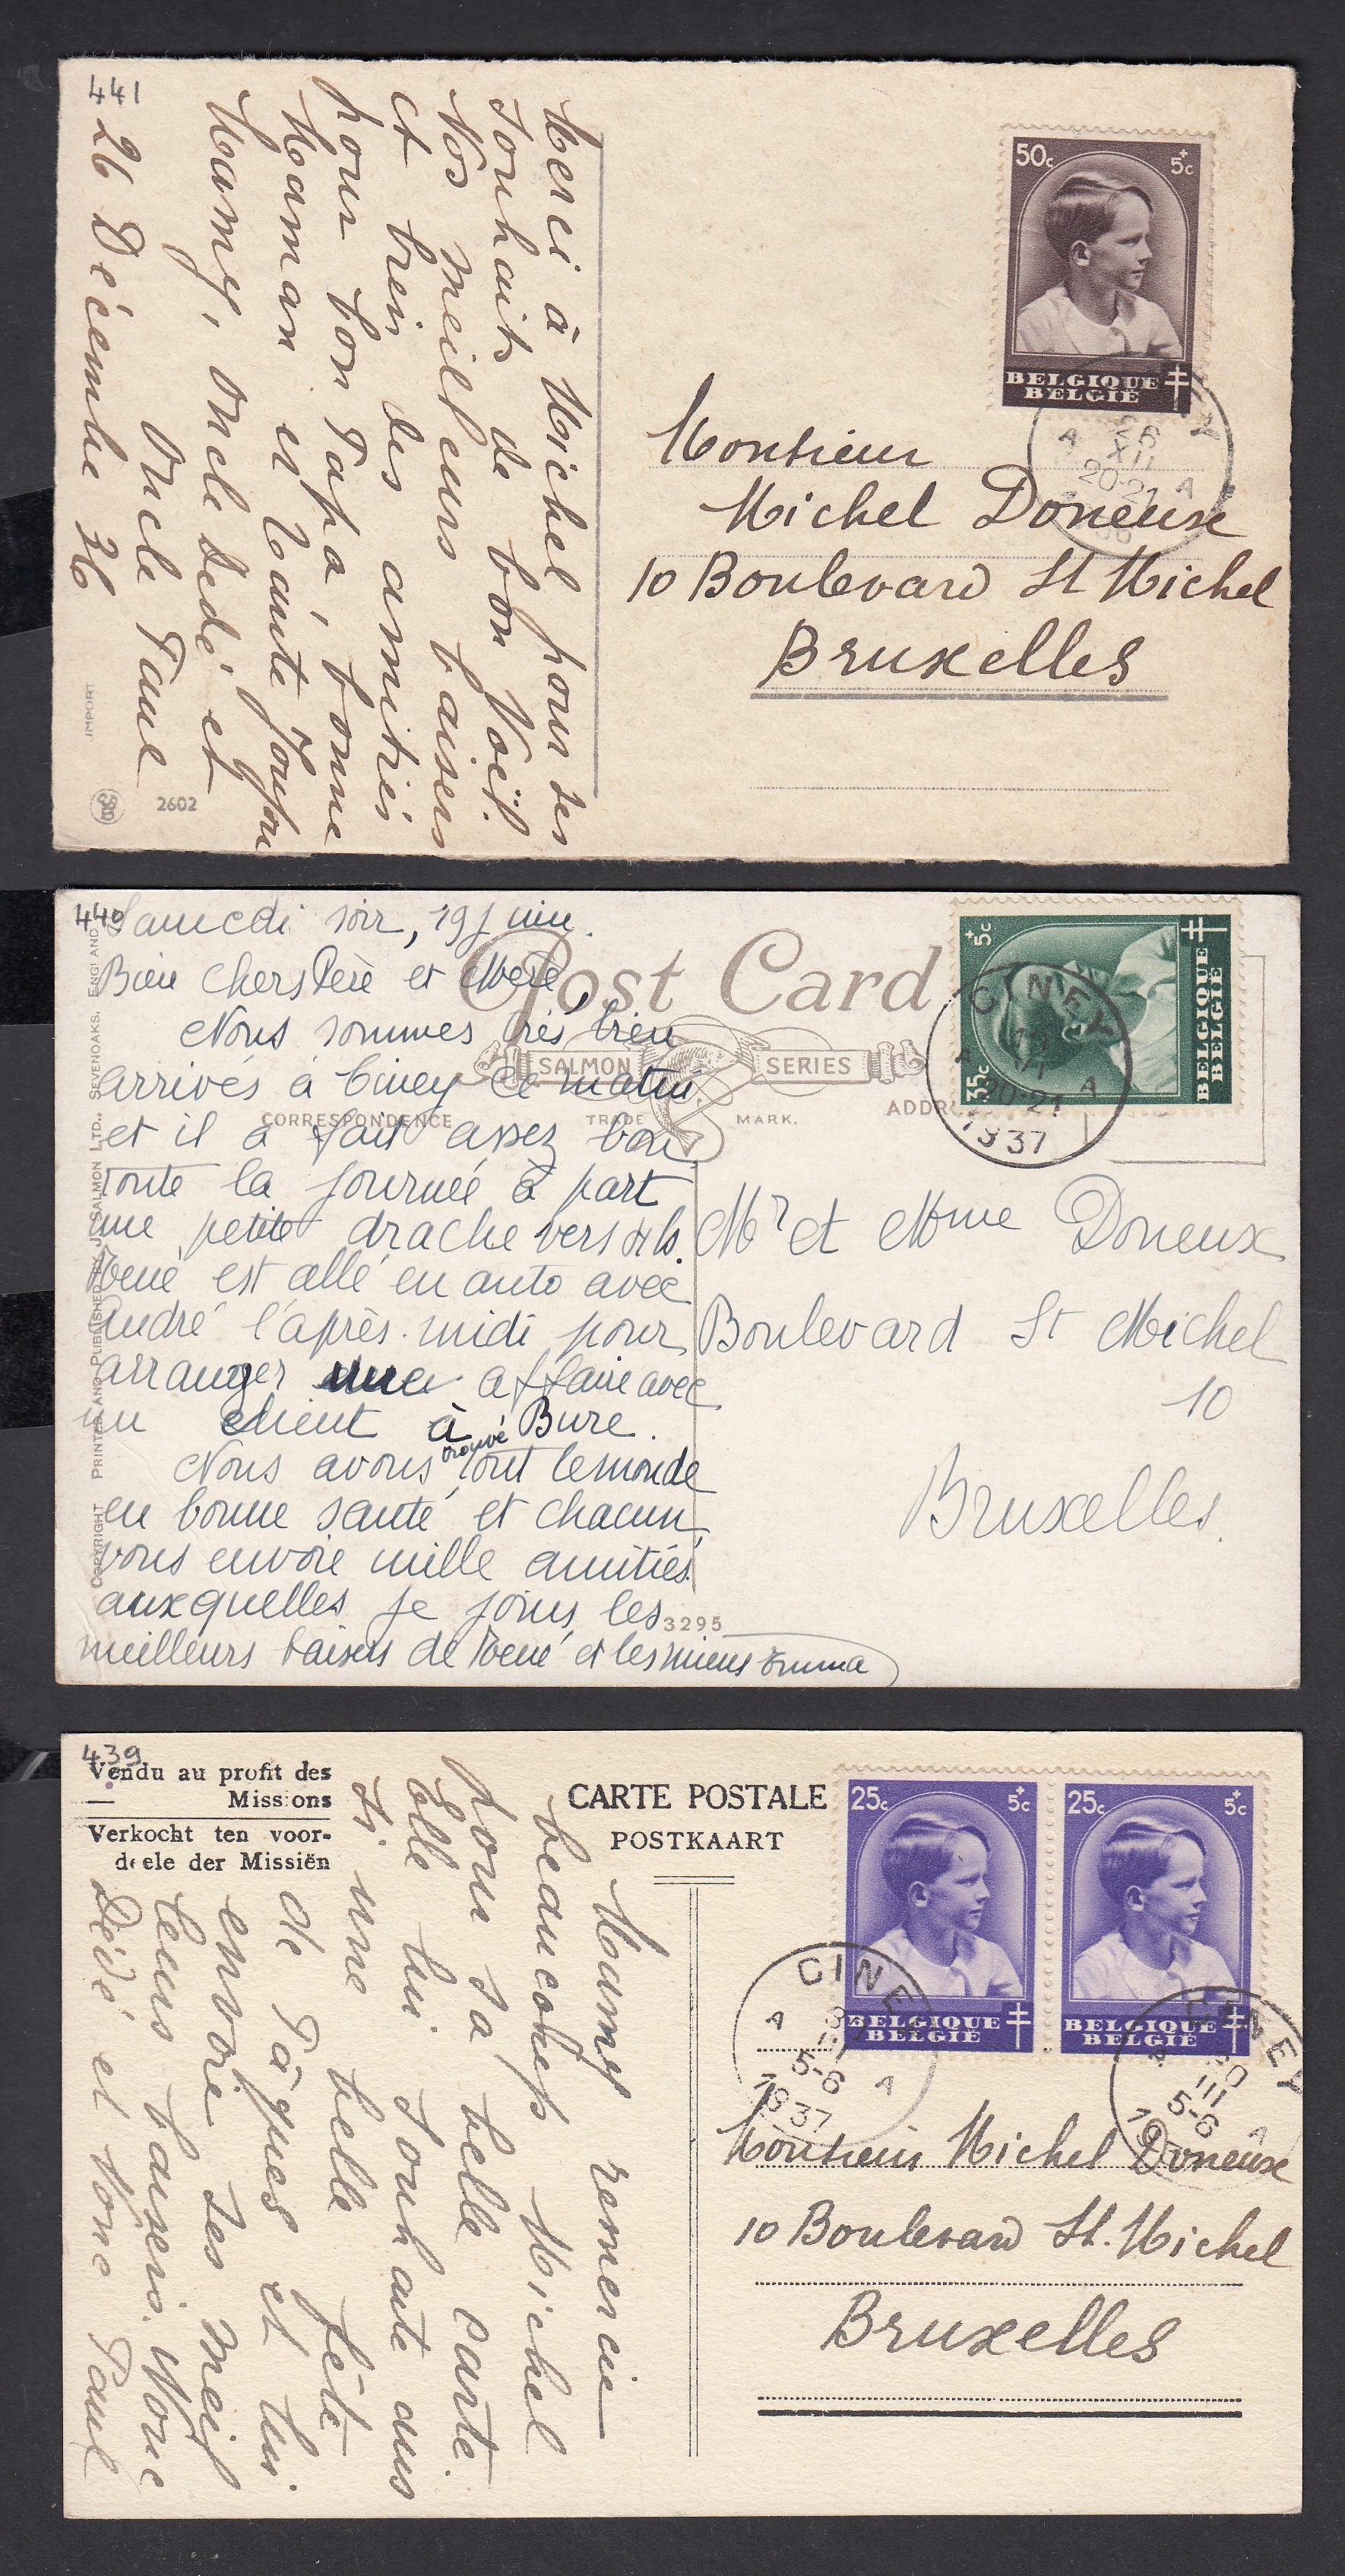 441
Merci à Michel pour ses
souhaits de bon Noël.
Nos meilleurs baisers
et bien des amitiés
pour bon Papa, bonne
Maman et tante Foufou
Mamy, Oncle Dédé, et
Oncle Paul
26 Décembre 36
IMPORT
2602
50c
+5c
BELGIQUE
BELGIË
26
XII
20-21
A A
Monsieur
Michel Doneux
10 Boulevard St Michel
Bruxelles
440
Samedi soir, 19 Juin.
Bien chers Père et Mère,
Nous sommes très bien
arrivés à Ciney ce matin
et il a fait assez bon
toute la journée à part
une petite drache vers
René est allé en auto avec
André l'après-midi pour
arranger une affaire avec
un client à Bure.
Nous avons trouvé tout le monde
en bonne santé et chacun
vous envoie mille amitiés
auxquelles je joins les
meilleurs baisers de René et les miens Emma
Post Card
SALMON SERIES
CORRESPONDENCE
TRADE MARK.
ADDR
COPYRIGHT PRINTED AND PUBLISHED BY J. SALMON LTD., SEVENOAKS, ENGLAND
3295
35c
+5c
BELGIQUE
BELGIË
CINEY
VI
20-21
A A
1937
Mr et Mme Doneux
Boulevard St Michel
10
Bruxelles.
439
Vendu au profit des
Missions
Verkocht ten voor-
deele der Missiën
CARTE POSTALE
POSTKAART
Mamy remercie
beaucoup Michel
pour sa belle carte.
Elle lui souhaite aussi une belle fête
de Pâques et lui
envoie ses meil
leurs baisers. None
Dédé et None Paul
25c
+5c
BELGIQUE
BELGIË
25c
+5c
BELGIQUE
BELGIË
CINEY
III
5-6
A A
1937
CINEY
30
III
5-6
Monsieur Michel Doneux
10 Boulevard St. Michel
Bruxelles